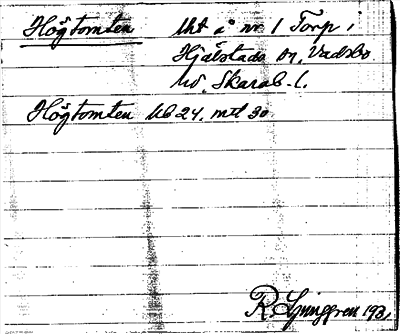 Högtomten lht å nr 1 Torp i
Hjälstads sn, Vadsbo
hd. Skarab. l.
Högtomten kb 24, mtl 30
R. Ljunggren 193